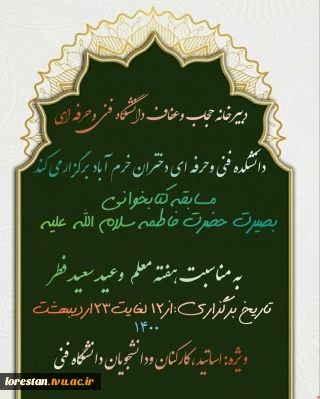 دبیرخانه حجاب و عفاف دانشگاه فنی و حرفه ای
دانشکده فنی و حرفه ای دختران خرم آباد برگزار می کند
مسابقه کتابخوانی
بصیرت حضرت فاطمه سلام الله علیه
به مناسبت هفته معلم و عید سعید فطر
تاریخ برگزاری: از ۱۲ لغایت ۲۳ اردیبهشت
۱۴۰۰
ویژه: اساتید، کارکنان و دانشجویان دانشگاه فنی
lorestan.tvu.ac.ir